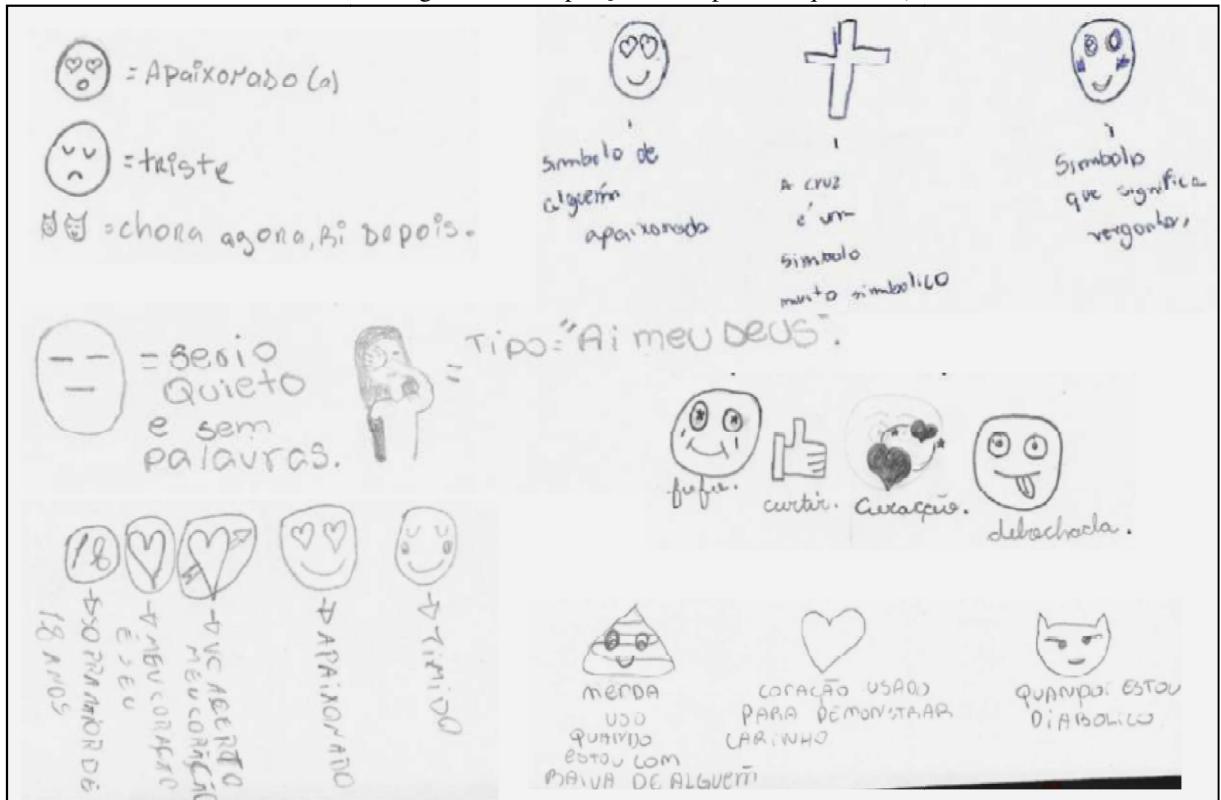 = Apaixonado (a)
= triste
= chora agora, Ri Depois.
simbolo de
alguém
apaixonado
A cruz
é um
simbolo
muito simbolico
Simbolo
que significa
vergonha,
= serio
Quieto
e sem
palavras.
= Tipo: "Ai meu Deus".
curtir.
debochada.
18
SO PRA MAIOR DE
18 ANOS
MEU CORAÇÃO
É SEU
VC ACERTO
MEU CORAÇÃO
APAIXONADO
TIMIDO
MERDA
USO
QUANDO
ESTOU COM
RAIVA DE ALGUEM
CORAÇÃO USADO
PARA DEMONSTRAR
CARINHO
QUANDO ESTOU
DIABOLICO